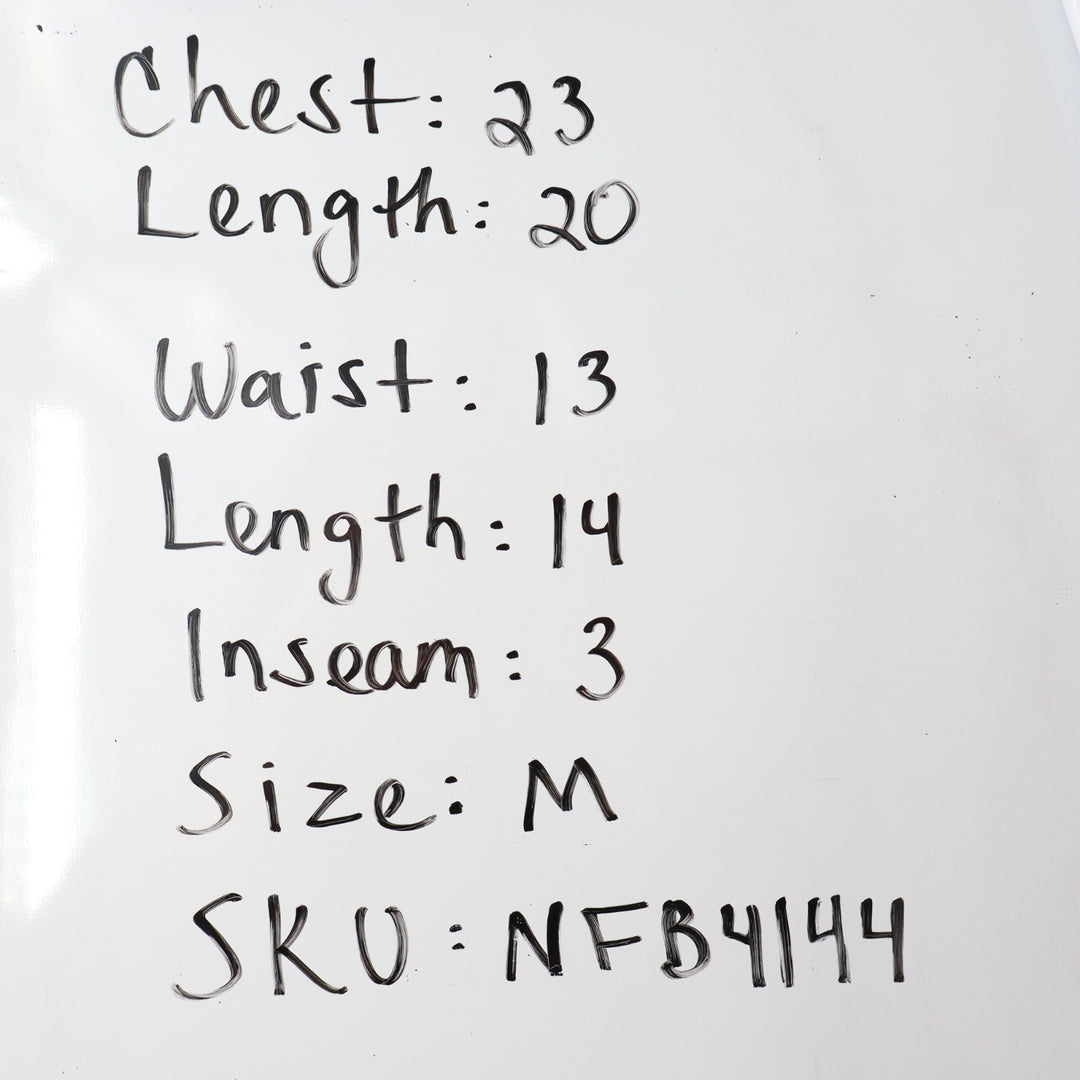 Chest: 23
Length: 20
Waist: 13
Length: 14
Inseam: 3
Size: M
SKU: NFB4144